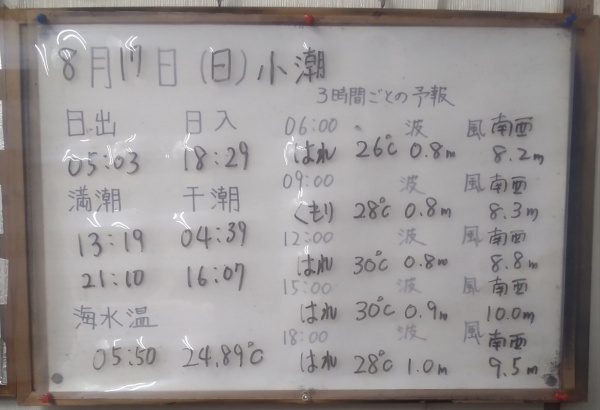 8月17日(日)小潮
3時間ごとの予報
日出 日入
05:03 18:29
満潮 干潮
13:19 04:39
21:10 16:07
海水温
05:50 24.89℃
06:00 波 風 南西
はれ 26℃ 0.8m 8.2m
09:00 波 風 南西
くもり 28℃ 0.8m 8.3m
12:00 波 風 南西
はれ 30℃ 0.8m 8.8m
15:00 波 風 南西
はれ 30℃ 0.9m 10.0m
18:00 波 風 南西
はれ 28℃ 1.0m 9.5m